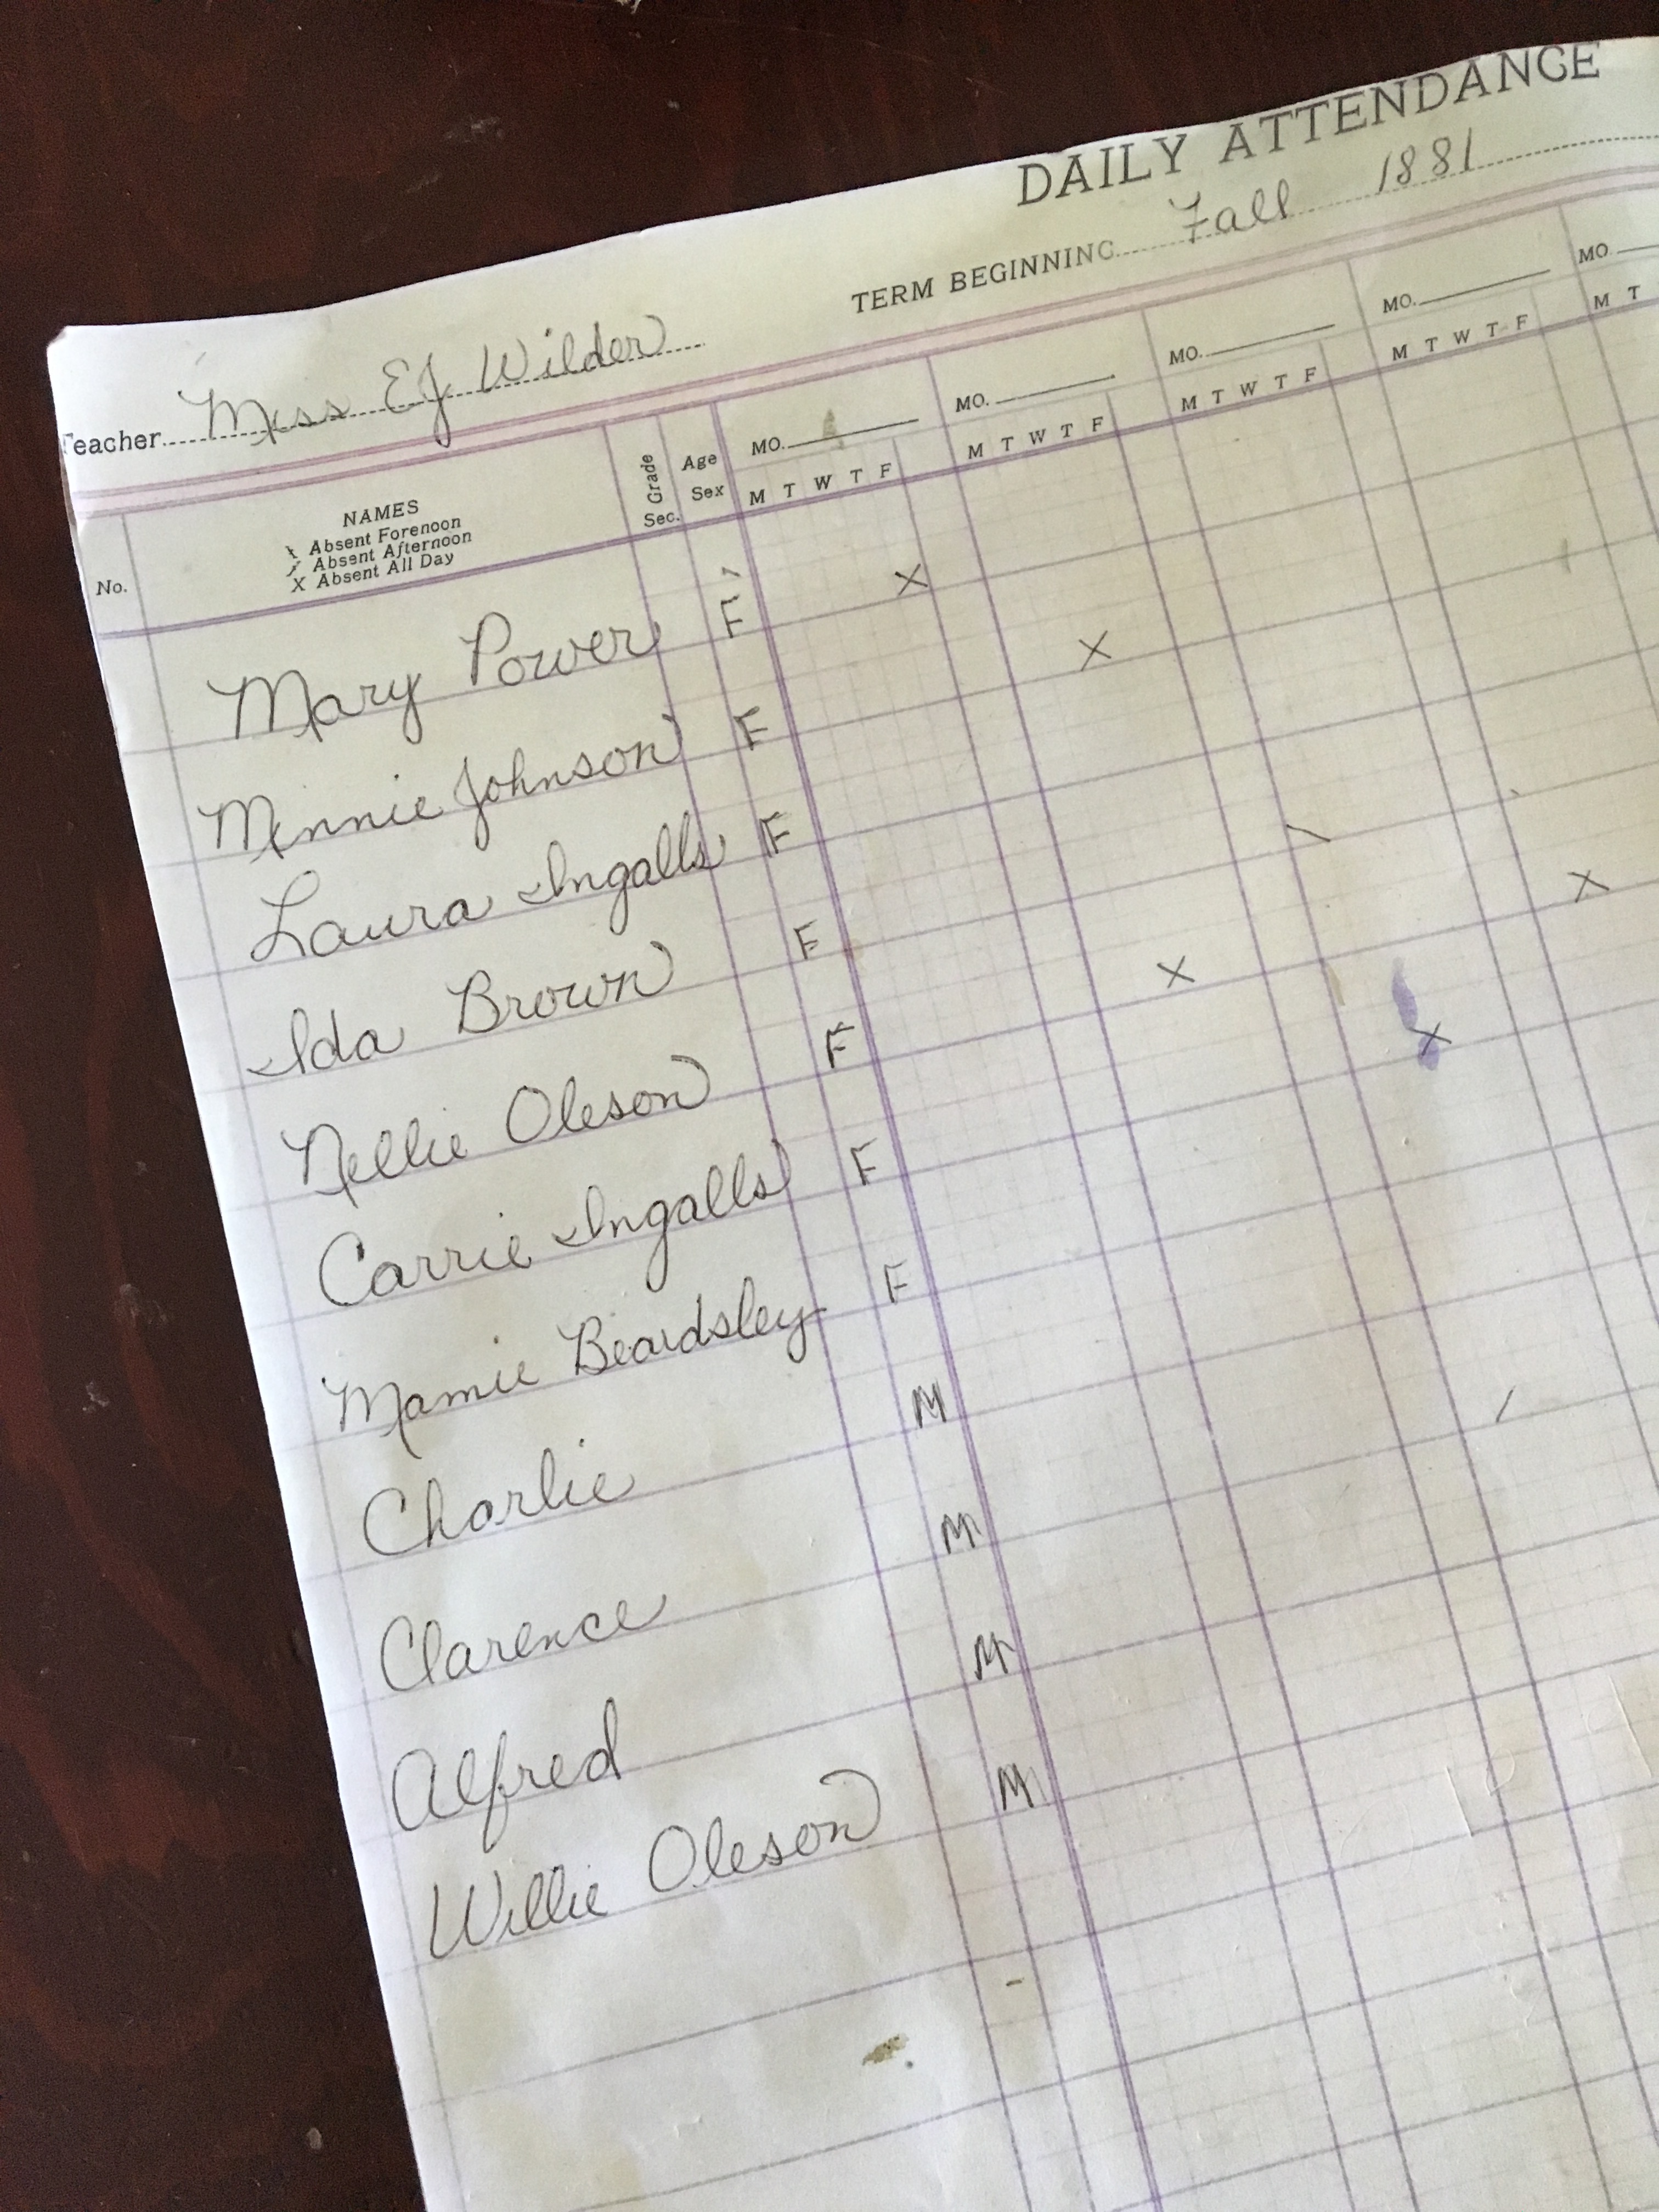 DAILY ATTENDANCE
TERM BEGINNING Fall 1881
Teacher Miss EJ Wilder
No.
NAMES
Absent Forenoon
Absent Afternoon
X Absent All Day
Grade
Sec.
Age
Sex
MO. MO. MO. MO. MO
M T W T F M T W T F M T W T F M T W T F M T
Mary Power F X
Minnie Johnson F X
Laura Ingalls F
Ida Brown F \ X
Nellie Oleson F X
Carrie Ingalls F X
Mamie Beardsley F
Charlie M
Clarence M /
Alfred M
Willie Oleson M